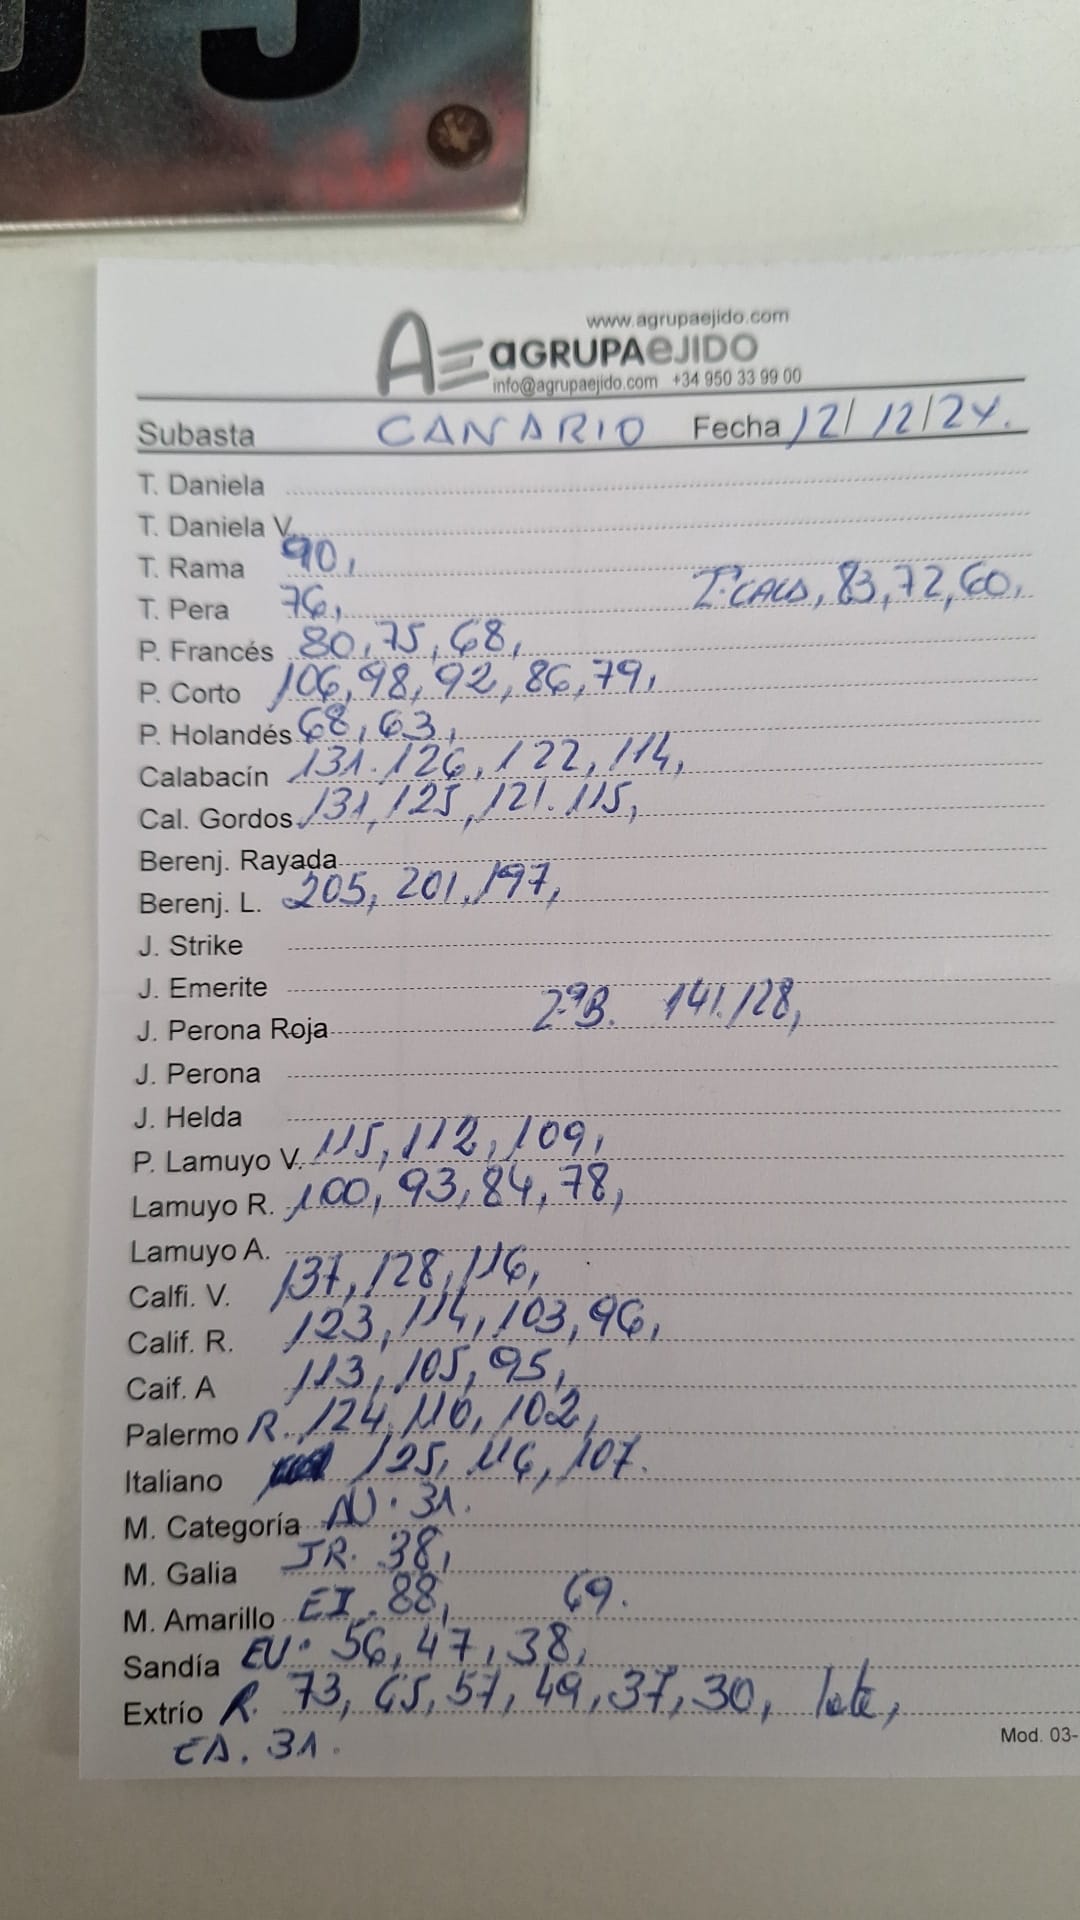 www.agrupaejido.com
AE aGRUPAeJIDO
info@agrupaejido.com +34 950 33 99 00
Subasta CANARIO Fecha 12/12/24.
T. Daniela
T. Daniela V.
T. Rama 90,
T. Pera 76, 83, 72, 60,
P. Francés 80, 75, 68,
P. Corto 106, 98, 92, 86, 79,
P. Holandés 68, 63,
Calabacín 131. 126, 122, 114,
Cal. Gordos 131, 125, 121. 115,
Berenj. Rayada
Berenj. L. 205, 201, 197,
J. Strike
J. Emerite
J. Perona Roja 2ªB. 141. 128,
J. Perona
J. Helda
P. Lamuyo V. 115, 112, 109,
Lamuyo R. 100, 93, 84, 78,
Lamuyo A.
Calfi. V. 137, 128, 116,
Calif. R. 123, 114, 103, 96,
Caif. A 113, 105, 95,
Palermo R. 124, 110, 102,
Italiano 125, 116, 107.
M. Categoría 31.
M. Galia JR. 38,
M. Amarillo EI. 88, 69.
Sandía EU. 56, 47, 38,
Extrío R. 73, 65, 57, 49, 37, 30, lote,
EA. 31.
Mod. 03-